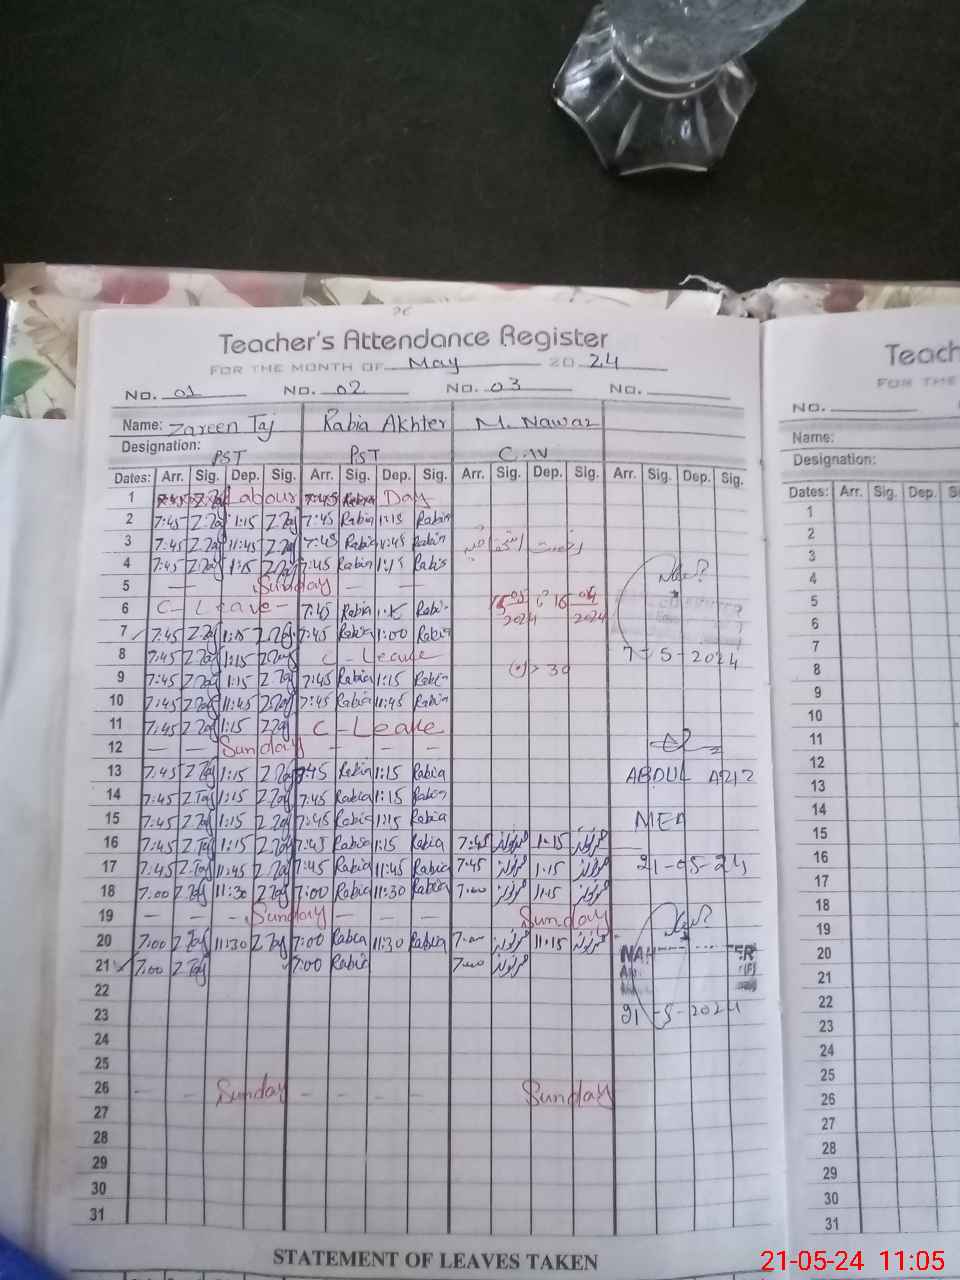 Teacher's Attendance Register
FOR THE MONTH OF May 20 24
No. 01 No. 02 No. 03 No.
Name: Zareen Taj Rabia Akhter M. Nawaz
Designation: PST PST C.IV
Dates: Arr. Sig. Dep. Sig. Arr. Sig. Dep. Sig. Arr. Sig. Dep. Sig. Arr. Sig. Dep. Sig.
1 Labour 7:45 Rabia Day
2 7:45 Z Taj 1:15 Z Taj 7:45 Rabia 1:15 Rabia
3 7:45 Z Taj 11:45 Z Taj 7:45 Rabia 11:45 Rabia
4 7:45 Z Taj 1:15 Z Taj 7:45 Rabia 1:15 Rabia
5 — Sunday — —
6 C - Leave - 7:45 Rabia 1:15 Rabia
7 7:45 Z Taj 1:15 Z Taj 7:45 Rabia 1:00 Rabia
7-5-2024
8 7:45 Z Taj 1:15 Z Taj C - Leave
9 7:45 Z Taj 1:15 Z Taj 7:45 Rabia 1:15 Rabia
10 7:45 Z Taj 11:45 Z Taj 7:45 Rabia 11:45 Rabia
11 7:45 Z Taj 1:15 Z Taj C - Leave
12 — — Sunday — — —
13 7:45 Z Taj 1:15 Z Taj 7:45 Rabia 1:15 Rabia ABDUL AZIZ
14 7:45 Z Taj 1:15 Z Taj 7:45 Rabia 1:15 Rabia
15 7:45 Z Taj 1:15 Z Taj 7:45 Rabia 1:15 Rabia MEA
16 7:45 Z Taj 1:15 Z Taj 7:45 Rabia 1:15 Rabia 7:45 1:15
17 7:45 Z Taj 11:45 Z Taj 7:45 Rabia 11:45 Rabia 7:45 1:15 21-05-24
18 7:00 Z Taj 11:30 Z Taj 7:00 Rabia 11:30 Rabia 7:00 1:15
19 — — - Sunday — — Sunday
20 7:00 Z Taj 11:30 Z Taj 7:00 Rabia 11:30 Rabia 7:00 11:15
21 7:00 Z Taj 7:00 Rabia 7:00
22
23 21-5-2024
24
25
26 - - Sunday - - - - Sunday
27
28
29
30
31
STATEMENT OF LEAVES TAKEN
Teach
FOR THE
No.
Name:
Designation:
Dates: Arr. Sig. Dep. S
1
2
3
4
5
6
7
8
9
10
11
12
13
14
15
16
17
18
19
20
21
22
23
24
25
26
27
28
29
30
31
21-05-24 11:05